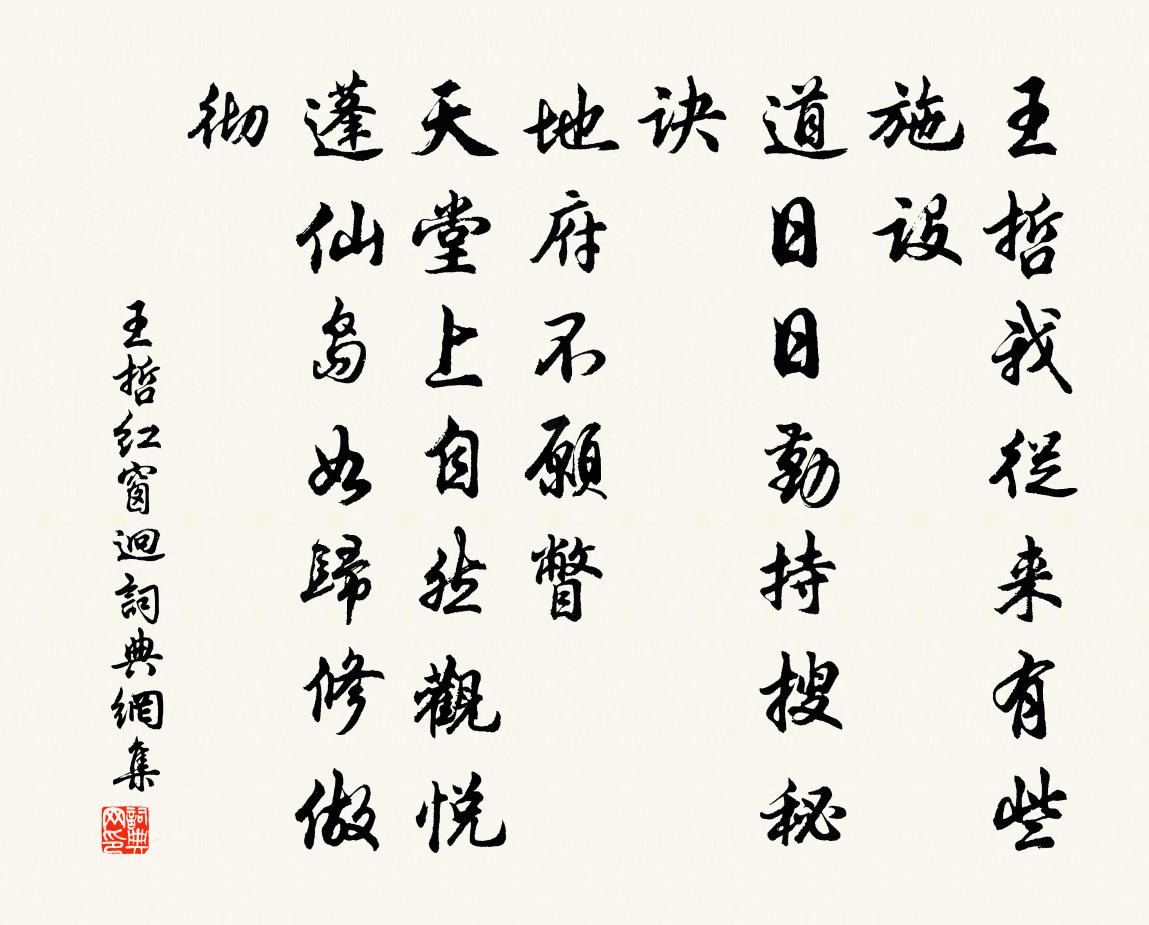 王哲我從来有些
施設
道日日勤持搜秘
訣
地府不願瞥
天堂上自然觀悅
蓬仙島如歸修做
彻
王哲红窗迥詞典網集
詞典网印